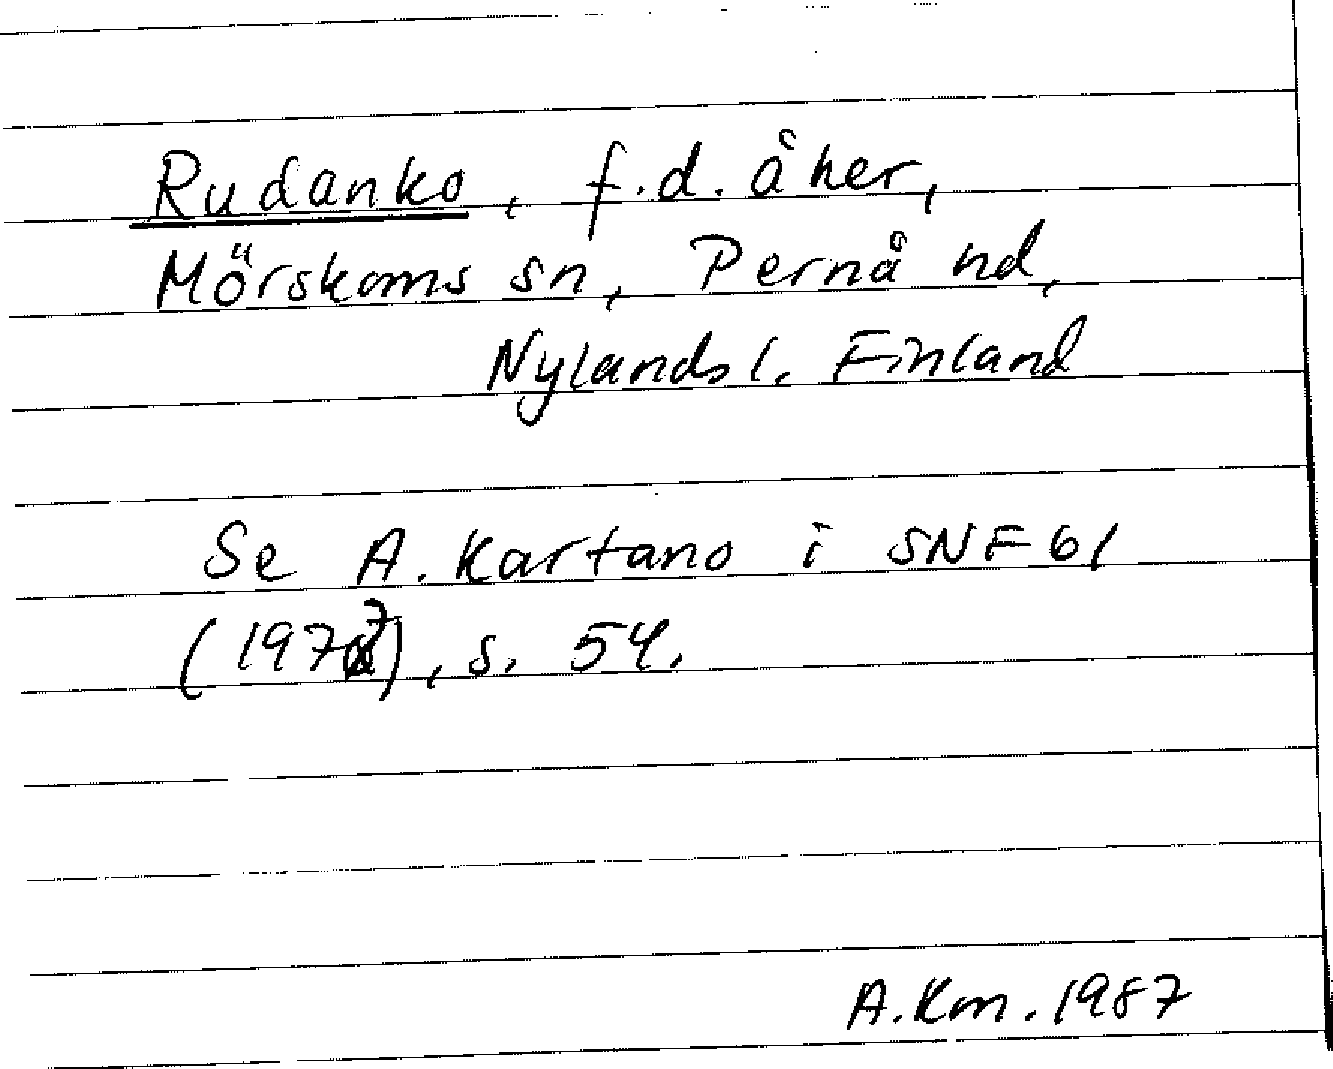 Rudanko, f.d. åker,
Mörskoms sn, Pernå hd,
Nylands l. Finland
Se A. Kartano i SNF 61
(1977), s. 54.
A.Km. 1987